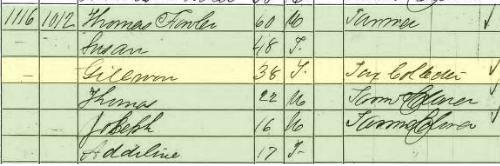 1116 1012 Thomas Fowler 60 M Farmer
Susan 48 F.
— 38 F. Tax Collector
Thomas 22 M Farm
— Joseph 16 M Farm
— Addiline 17 F